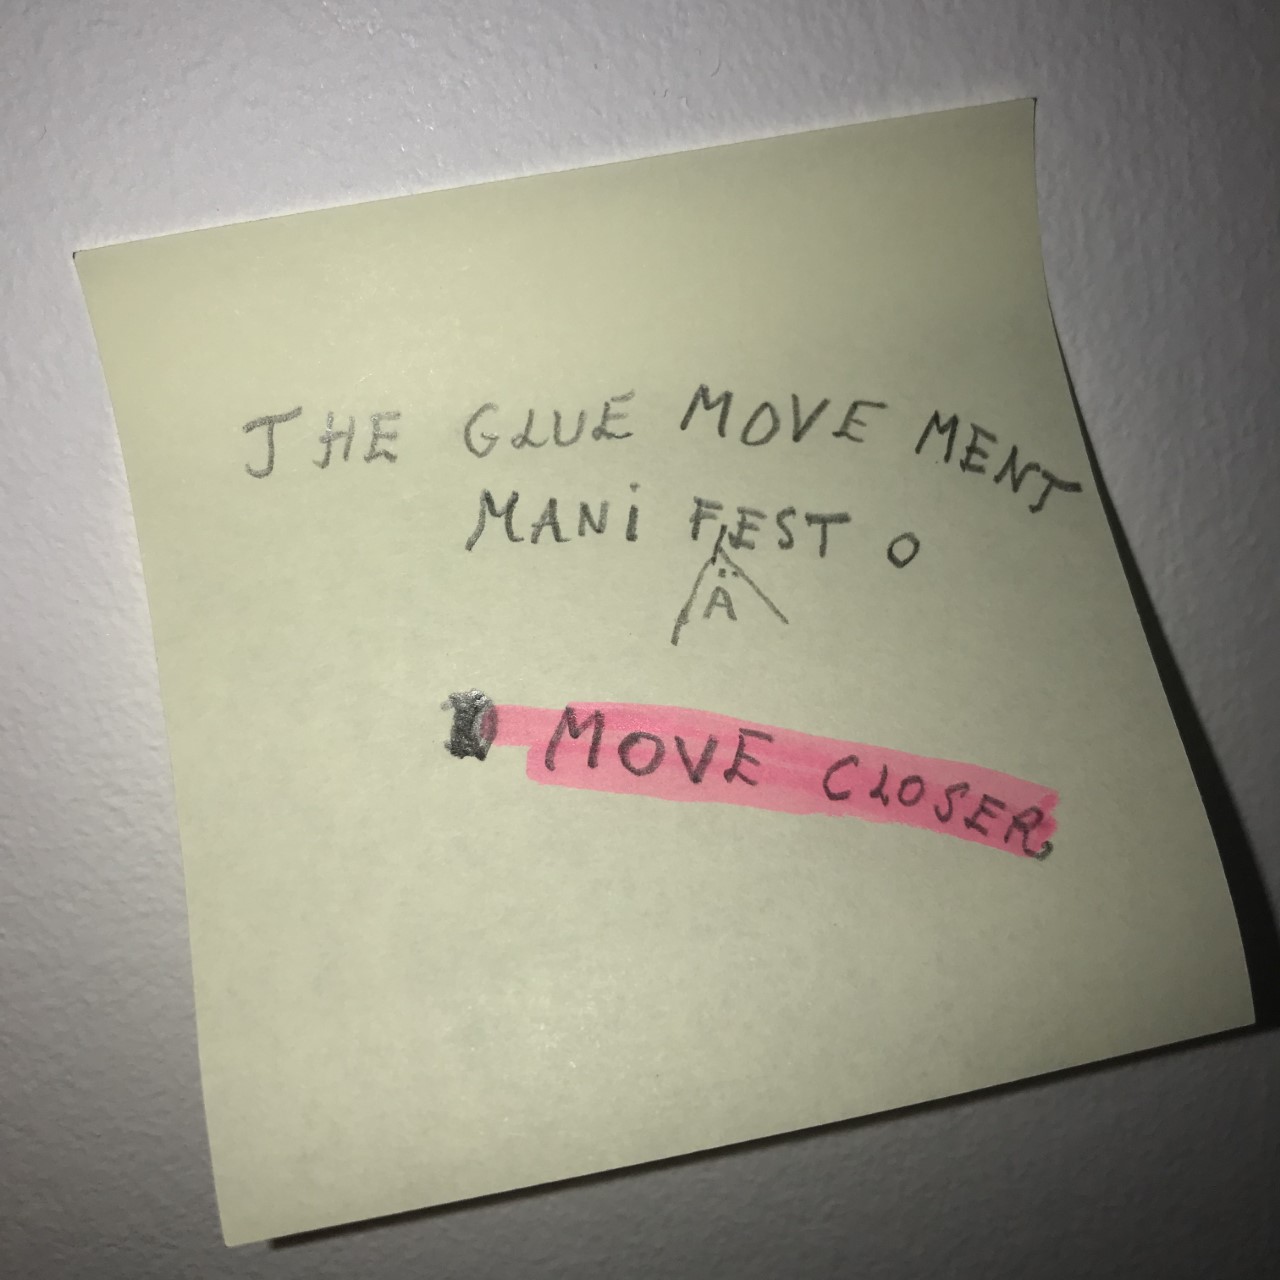 THE GLUE MOVE MENT
MANi FEST O
Ä
MOVE CLOSER